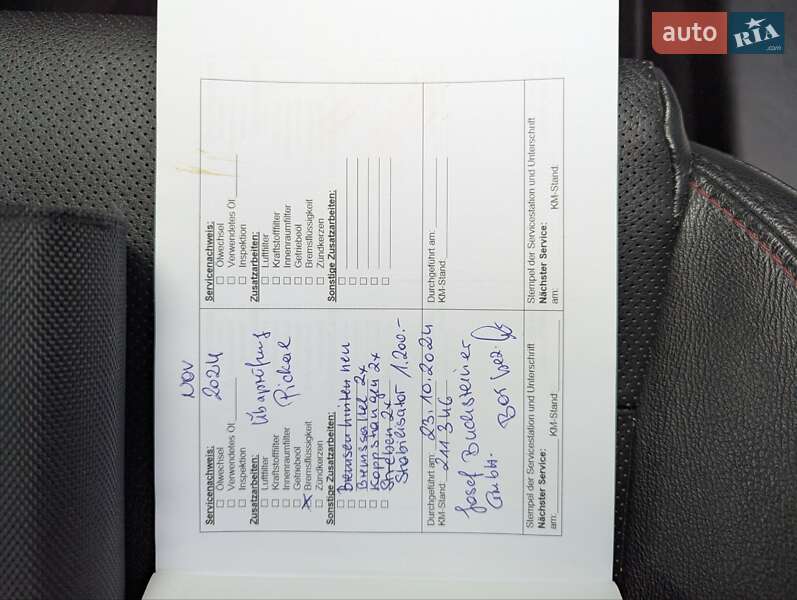 auto RIA.com
NOV
2024
Servicenachweis:
Ölwechsel
Verwendetes Öl
Inspektion
Zusatzarbeiten:
Überprüfung
Luftfilter
Pickerl
Kraftstofffilter
Innenraumfilter
Getriebeöl
Bremsflüssigkeit
Zündkerzen
Sonstige Zusatzarbeiten:
Bremsen hinten neu
Bremssattel 2x
Koppstangen 2x
Streben 2x
Stabilisator 1.200.-
Durchgeführt am: 23.10.2024
KM-Stand: 211346
Josef Buchsteiner
GmbH.
Stempel der Servicestation und Unterschrift
Nächster Service:
am: KM-Stand:
Servicenachweis:
Ölwechsel
Verwendetes Öl
Inspektion
Zusatzarbeiten:
Luftfilter
Kraftstofffilter
Innenraumfilter
Getriebeöl
Bremsflüssigkeit
Zündkerzen
Sonstige Zusatzarbeiten:
Durchgeführt am:
KM-Stand:
Stempel der Servicestation und Unterschrift
Nächster Service:
am: KM-Stand: